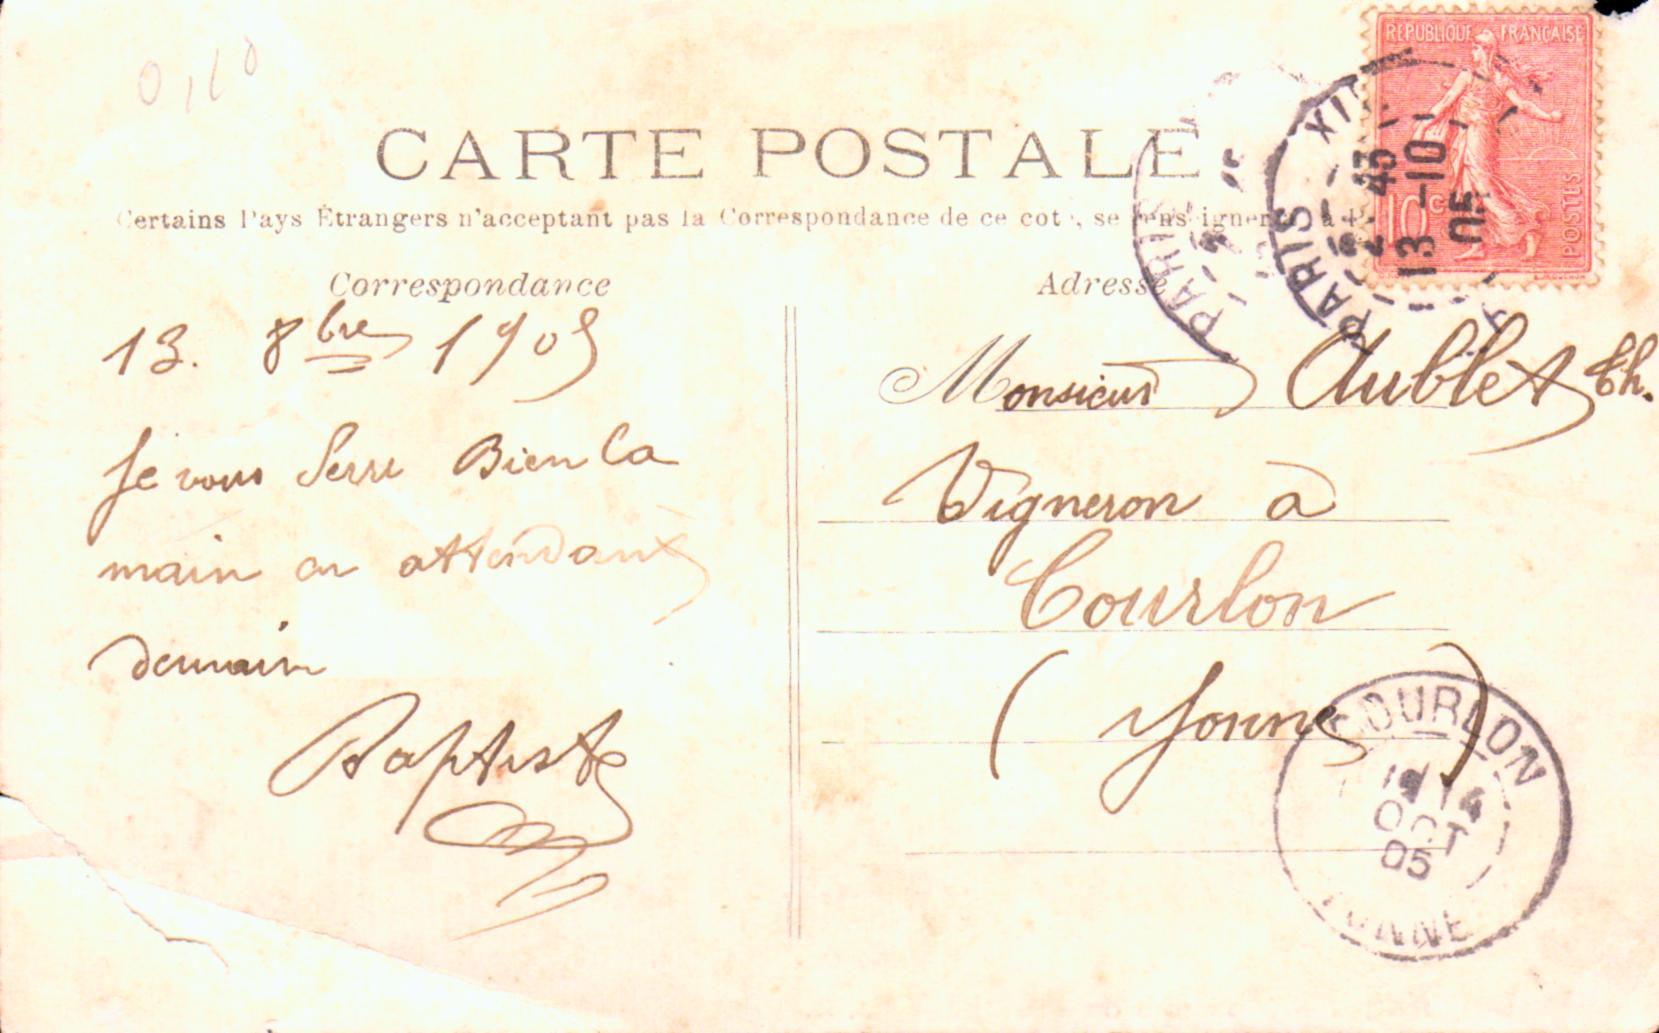 0,10
RÉPUBLIQUE FRANÇAISE
10 c
POSTES
CARTE POSTALE
Certains Pays Étrangers n'acceptant pas la Correspondance de ce coté, se renseigner à
Correspondance
Adresse
PARIS
PARIS XI
2 43
13 -10
05
13. 8bre 1905
Je vous Serre Bien la
main en attendant
demain
Baptiste
Monsieur Aublet Th.
Vigneron à
Courlon
(Yonne)
COURLON
14
OCT
05
YONNE